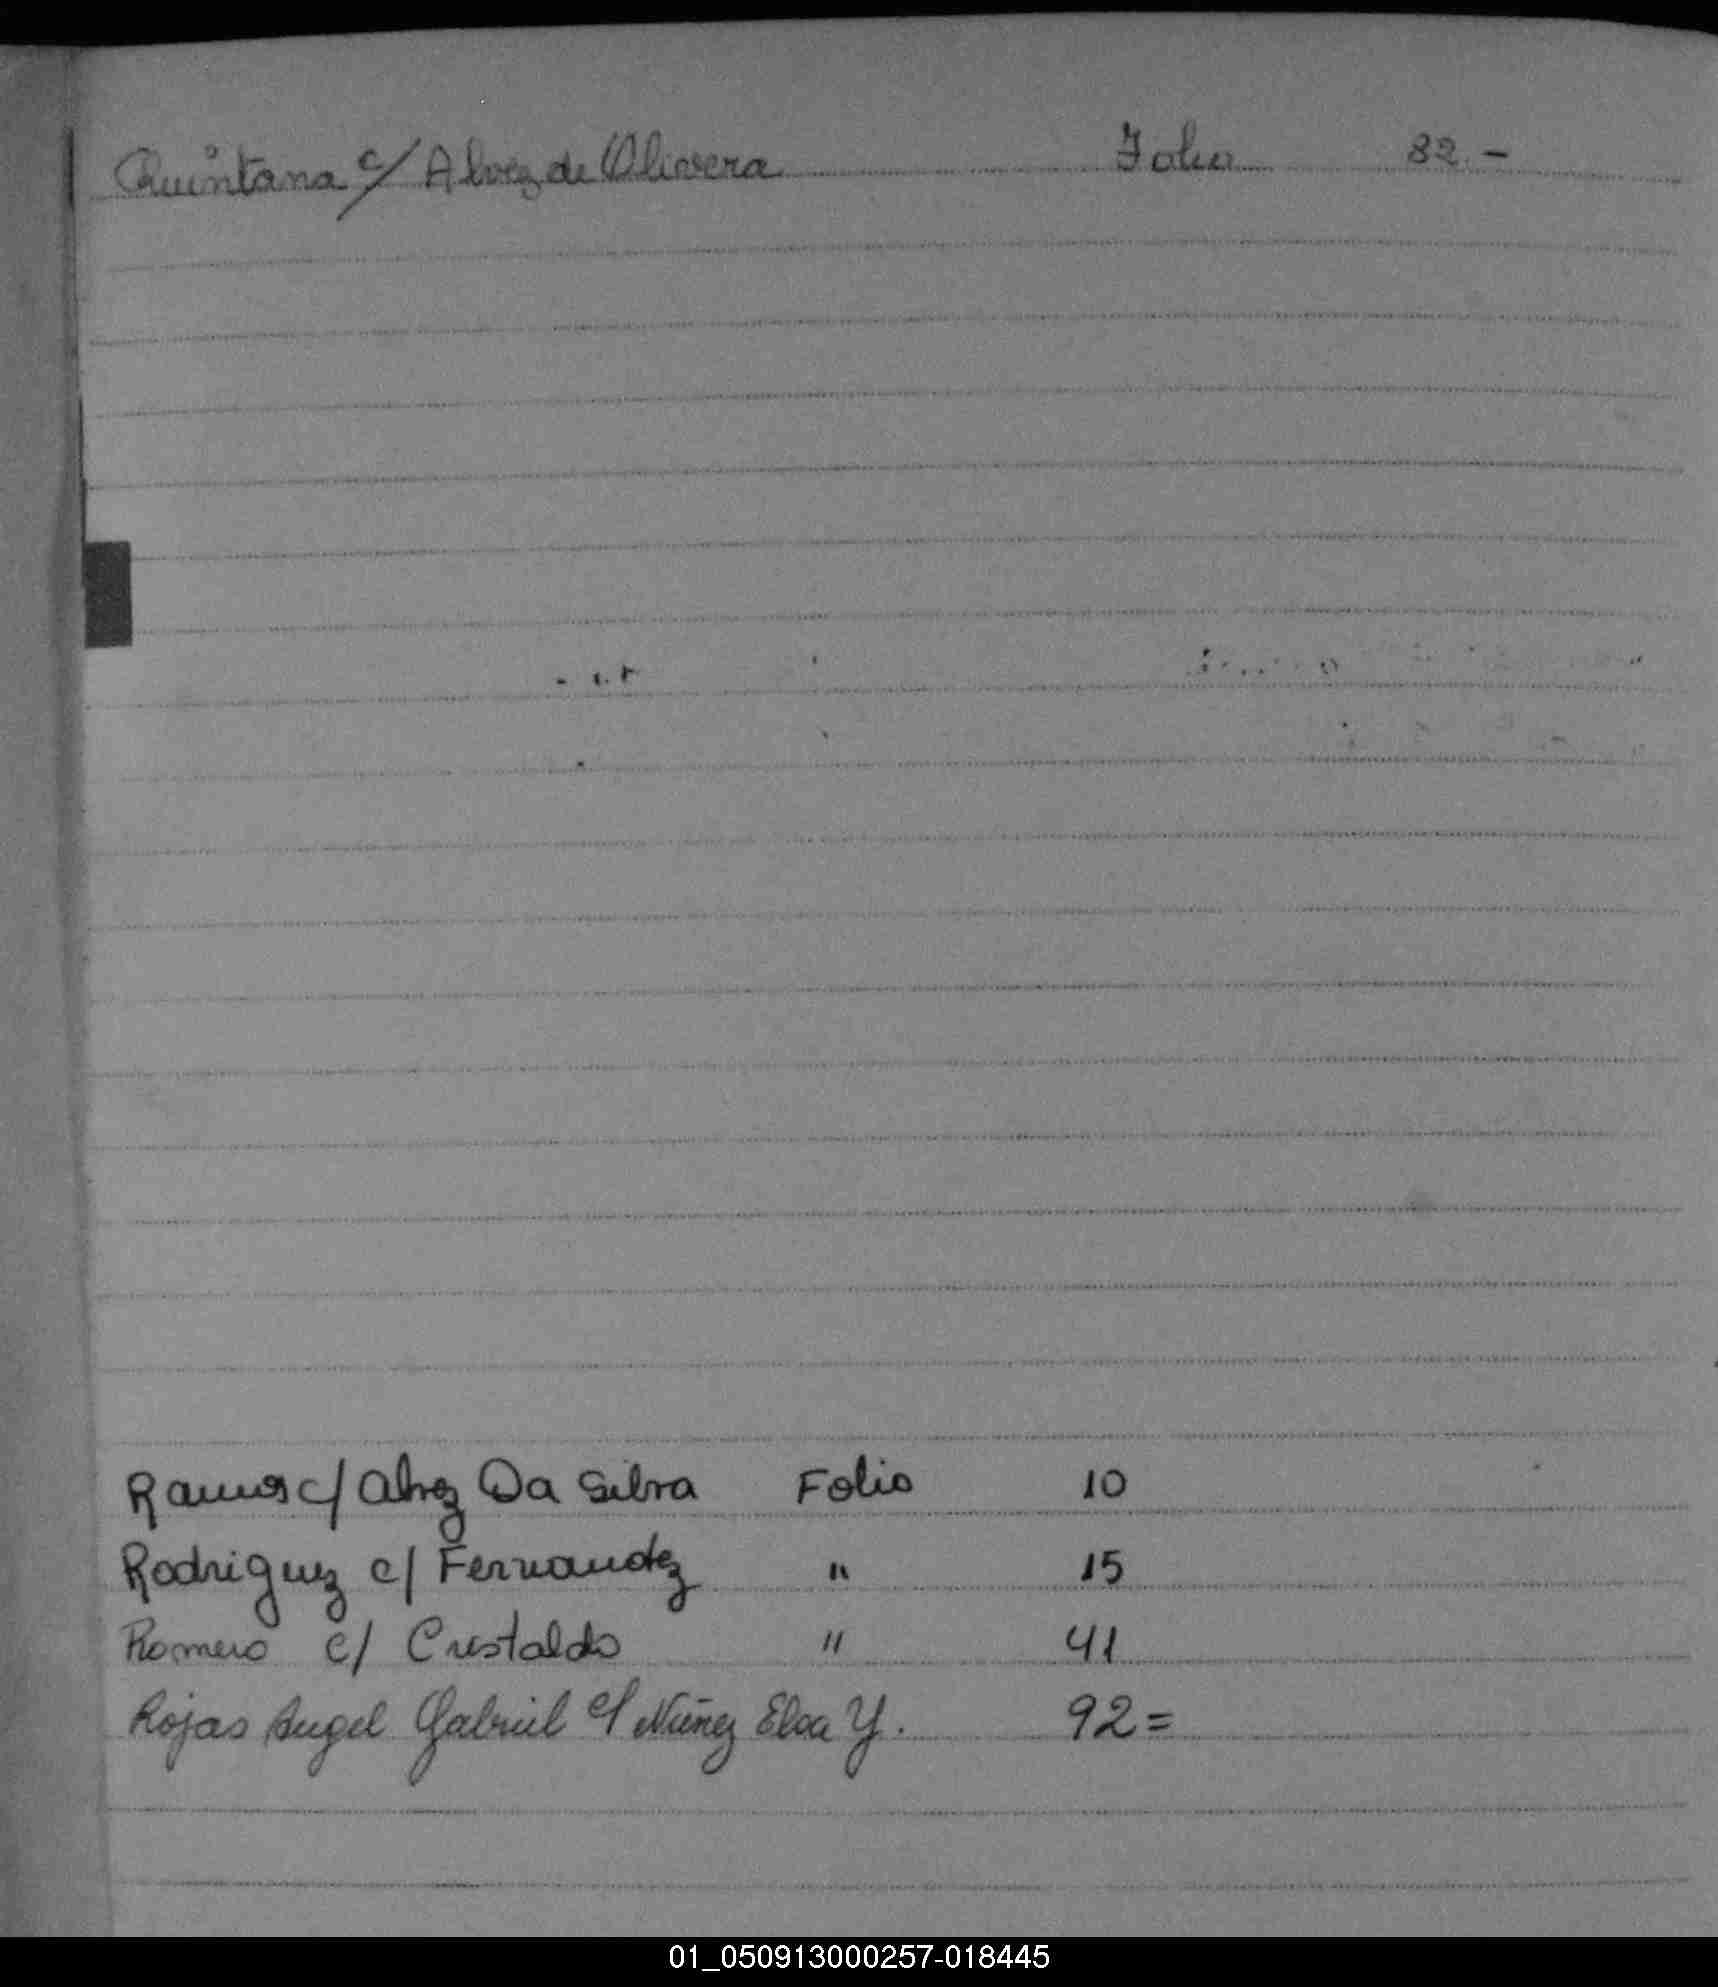 Quintana c/ Alvez de Olivera Folio 82.-
Ramos c/ Alvez Da Silva Folio 10
Rodriguez c/ Fernandez " 15
Romero c/ Cristaldo " 41
Rojas Angel Gabriel c/ Núñez Elva Y. 92=
01_050913000257-018445